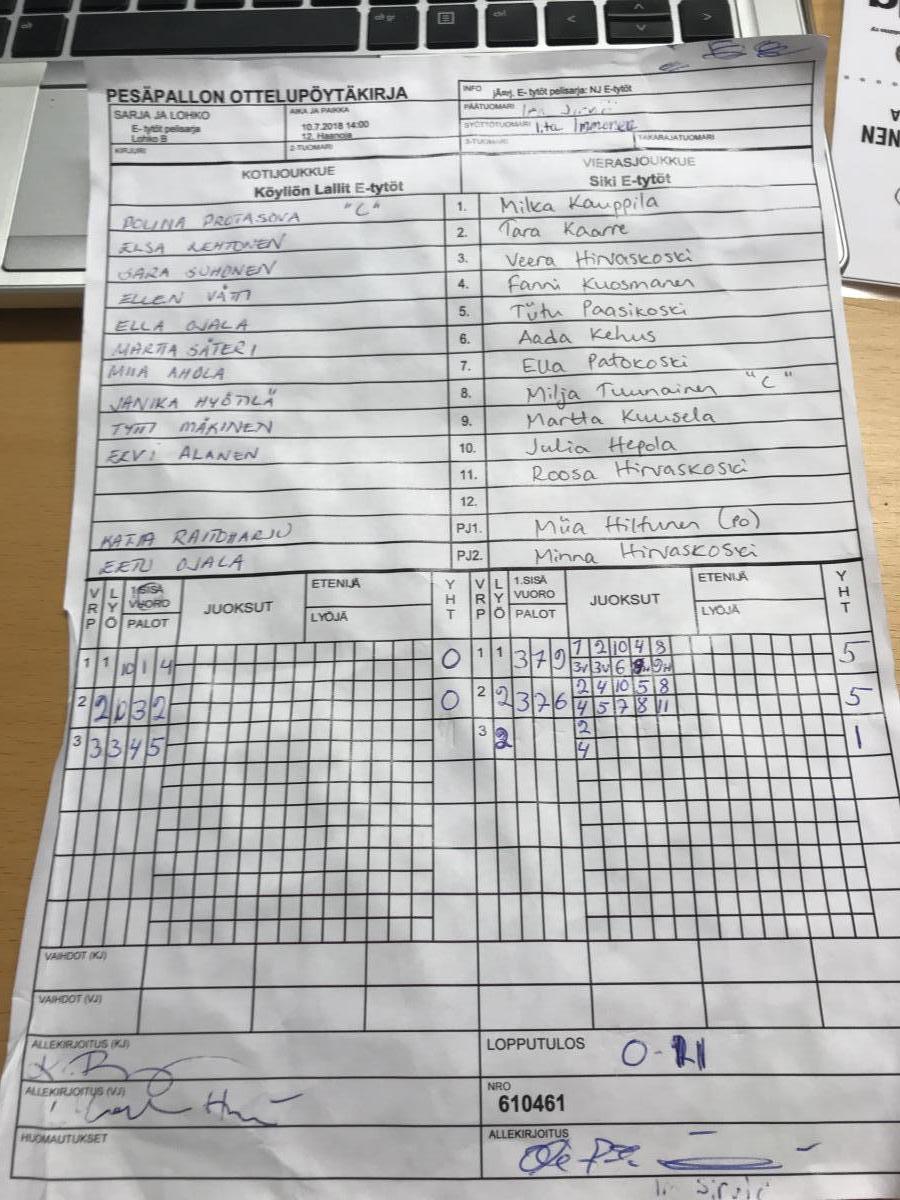 PESÄPALLON OTTELUPÖYTÄKIRJA
INFO jÄmj. E- tytöt pelisarja: NJ E-tytöt
SARJA JA LOHKO
E- tytöt pelisarja
Lohko B
AIKA JA PAIKKA
10.7.2018 14:00
12. Haanoja
PÄÄTUOMARI
SYÖTTÖTUOMARI Iita Immonen
KIRJURI
2-TUOMARI
3-TUOMARI
TAKARAJATUOMARI
KOTIJOUKKUE
Köyliön Lallit E-tytöt
VIERASJOUKKUE
Siki E-tytöt
POLINA PROTASOVA "C" 1. Milka Kauppila
ELSA LEHTONEN 2. Tara Kaarre
SARA SUHONEN 3. Veera Hirvaskoski
ELLEN VÄTTI 4. Fanni Kuosmanen
ELLA OJALA 5. Tutu Paasikoski
MARTTA SÄTERI 6. Aada Kehus
MIIA AHOLA 7. Ella Patokoski
JANIKA HYÖTILÄ 8. Milja Tuunainen "C"
TYTTI MÄKINEN 9. Martta Kuusela
EEVI ALANEN 10. Julia Hepola
11. Roosa Hirvaskoski
12.
KATJA RAITOHARJU PJ1. Miia Hiltunen (PO)
EETU OJALA PJ2. Minna Hirvaskoski
VRP LYÖ 1.SISÄ VUORO PALOT JUOKSUT ETENIJÄ LYÖJÄ YHT VRP LYÖ 1.SISÄ VUORO PALOT JUOKSUT ETENIJÄ LYÖJÄ YHT
1 1 10 1 4 0 1 1 3 7 9 1 2 10 4 8 5
3V 3V 6 9H 9H
2 2 10 3 2 0 2 2 3 7 6 2 4 10 5 8 5
4 5 7 8 11
3 3 3 4 5 3 2 2 1
4
VAIHDOT (KJ)
VAIHDOT (VJ)
ALLEKIRJOITUS (KJ)
LOPPUTULOS 0-11
ALLEKIRJOITUS (VJ)
NRO
610461
HUOMAUTUKSET
ALLEKIRJOITUS